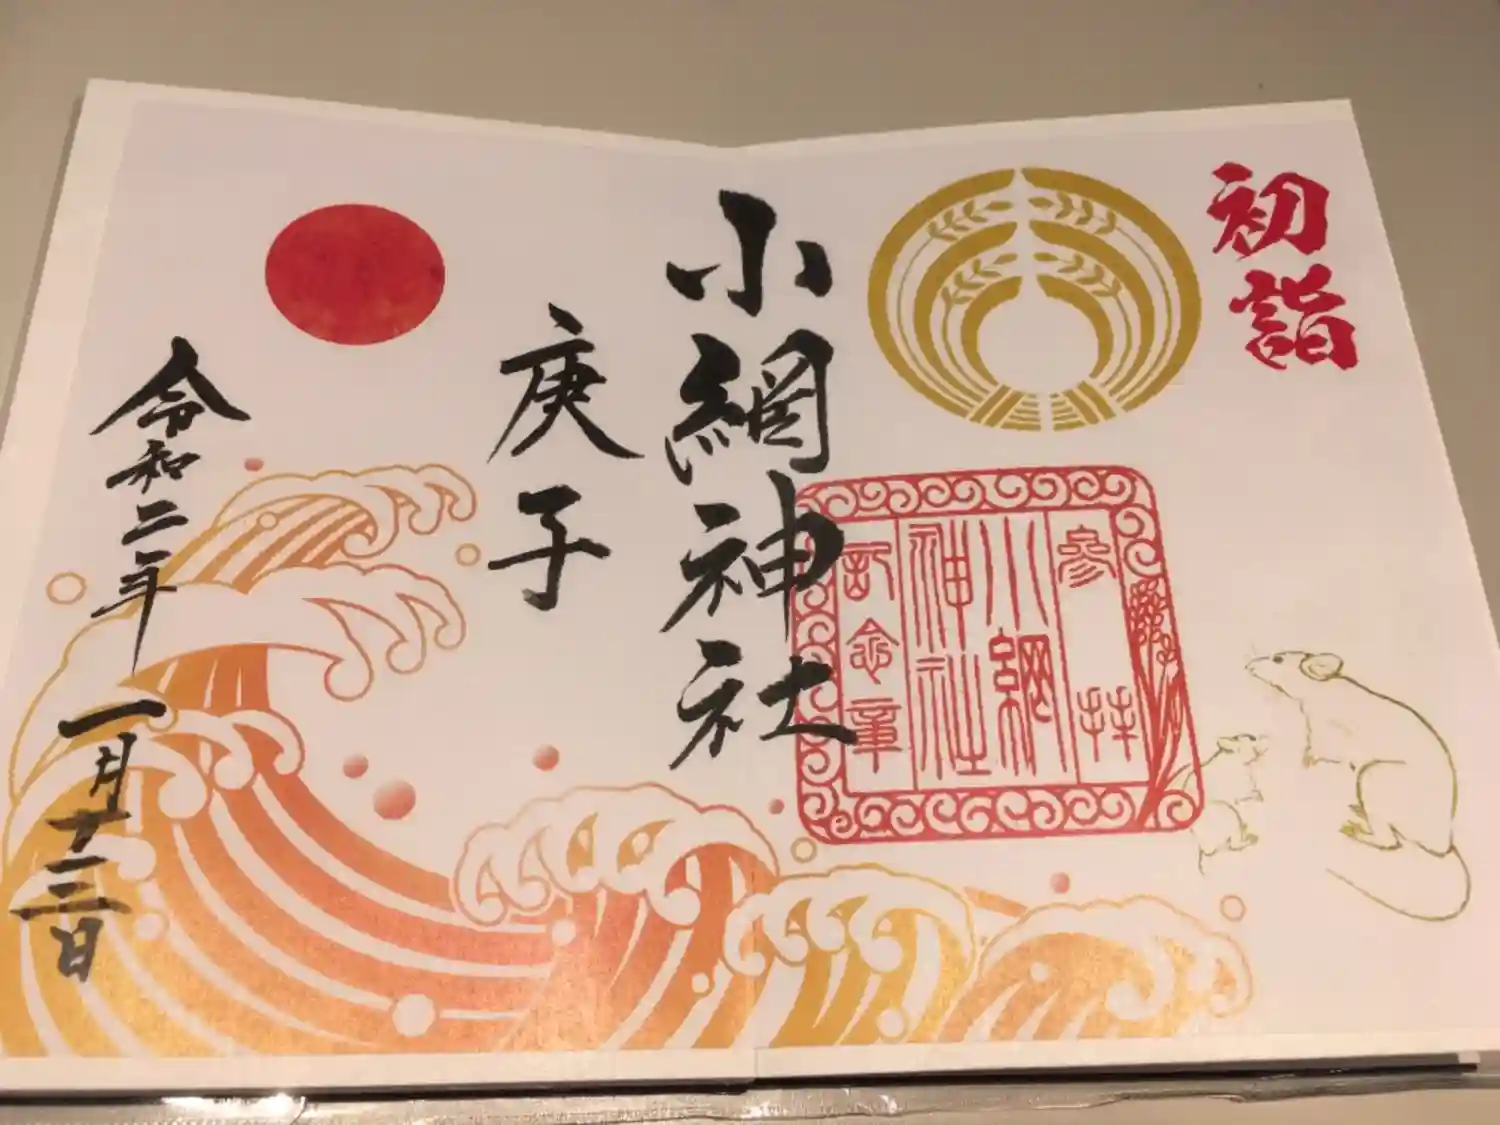 初詣
小網神社
庚子
令和二年 一月十三日
參拝
小網
神社
記念章